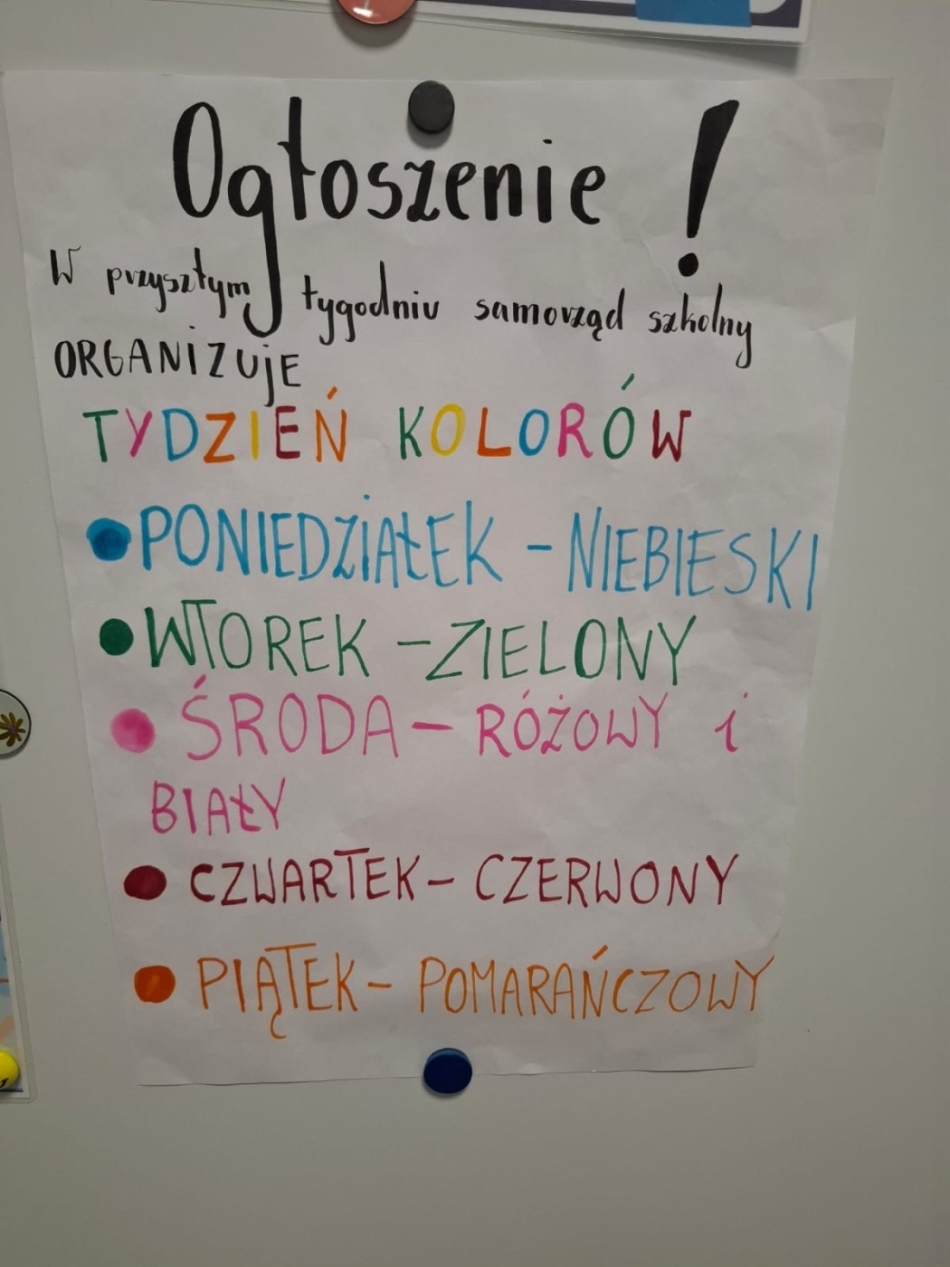 Ogłoszenie !
W przyszłym tygodniu samorząd szkolny
ORGANiZUjE
TYDZIEŃ KOLORÓW
PONIEDZIAŁEK - NIEBIESKI
WTOREK - ZIELONY
ŚRODA - RÓŻOWY i
BIAŁY
CZWARTEK - CZERWONY
PIĄTEK - POMARAŃCZOWY